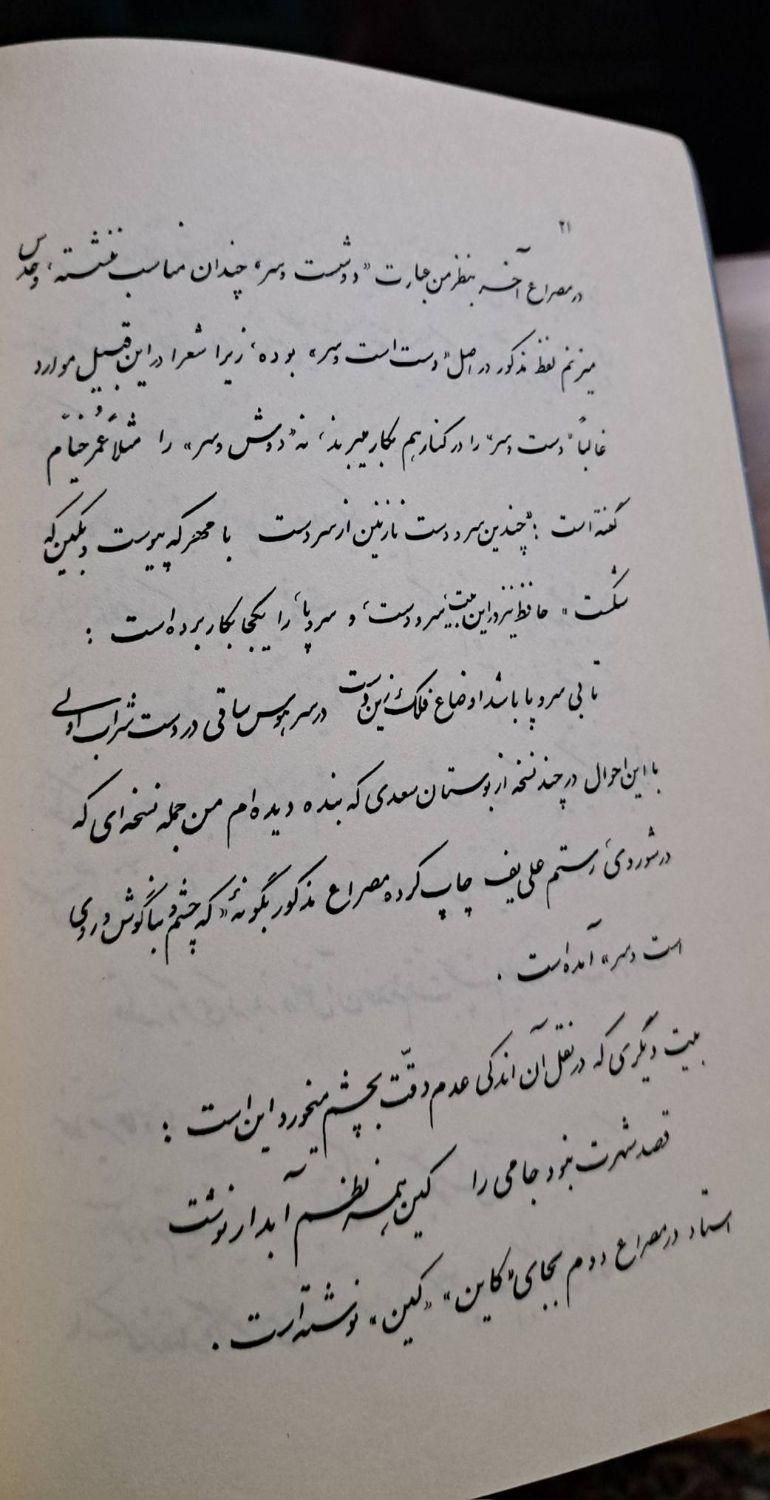 ۲۱
در مصراع آخر بنظر من عبارت «دوشست وسر» چندان مناسب ننشسته، وحدس
میزنم لفظ مذکور در اصل «دست است وسر» بوده، زیرا شعرا در این قبیل موارد
غالباً «دست وسر» را در کنار هم بکار میبرند، نه «دوش وسر» را مثلاً عُمَر خیّام
گفته است: «چندین سر و دست نازنین از سر دست با مهر که پیوست و بکین که
شکست» حافظ نیز در این بیت، سر و دست، و سر و پا، را یکجا بکار برده است :
تا بی سر و پا باشد اوضاع فلک زین دست در سر هوس ساقی در دست شراب اولی
با این احوال در چند نسخه از بوستان سعدی که بنده دیده ام من جمله نسخه ای که
در شوروی، رستم علی یف چاپ کرده مصراع مذکور بگونهٔ «که چشم و بناگوش و روی
است وسر» آمده است .
بیت دیگری که در نقل آن اندکی عدم دقّت بچشم میخورد این است :
قصد شهرت نبود جامی را کین همه نظم آبدار نوشت
استاد در مصراع دوم بجای «کاین» «کین» نوشته است .